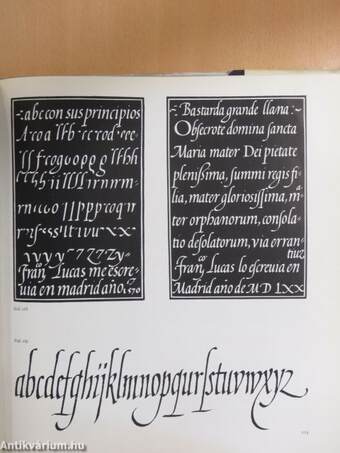 :abc con sus principios
A·co a llbb·ccrod·eee
lllfcogooççgllbhh
ſhiiillirnrm-
rnrnopprroqrr
rſſssſtlluvxx
vyyy77ZZZy-
Fran.co Lucas me escre=
uia en madrid año. 1570
:Bastarda grande llana:
Obsecrote domina sancta
Maria mater Dei pietate
plenissima, summi regis fi-
lia, mater gloriosissima, m-
ter orphanorum, consola-
tio desolatorum, via erran-
tiuz
Fran.co Lucas lo escreuia en
Madrid año de M D LXX
abcdefghijklmnopqurſstuvwxyz
Antikvárium.hu